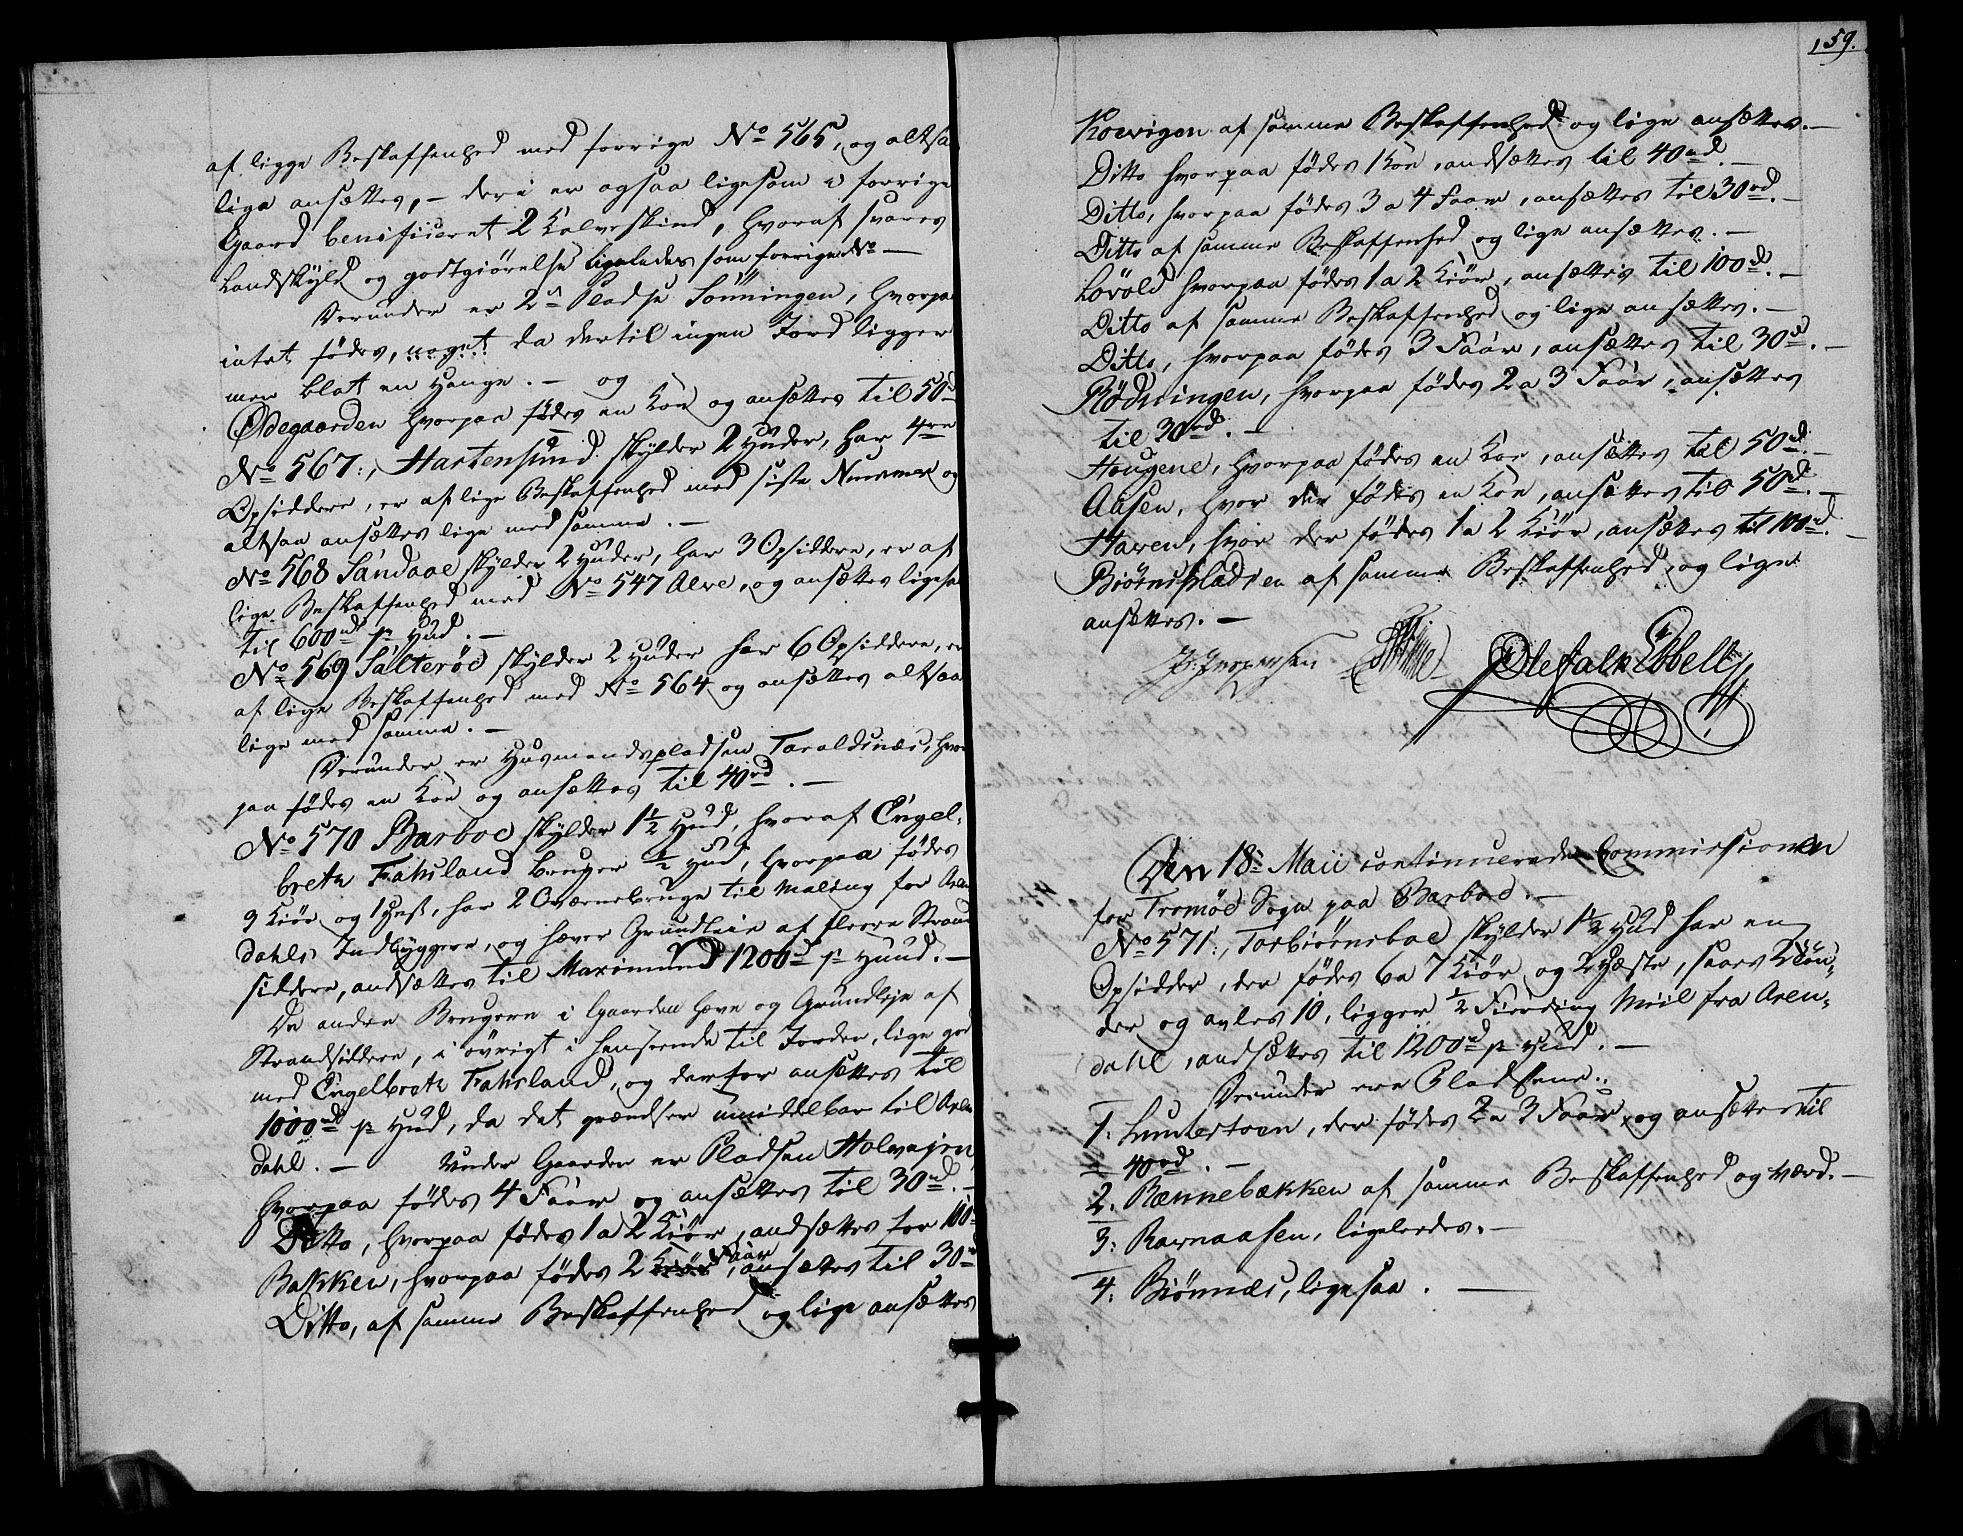 af ligge Beskaffenhed med forrige No 565, og altsaa
lige ansættes, - deri er ogsaa ligesom i forrige
Gaard benificeret 2 Kalveskind, hvoraf svares
Landskyld og godtgiörelse ligeledes som forrige No —
Derunder er 2de Pladse Sönningen, hvorpaa
intet födes, noget da dertil ingen Jord ligger
men blot en Hauge. — og
Ødegaarden hvorpaa födes en Koe og ansættes til 50rd
No 567:, Hartensund skylder 2 Huder, har 4re
Opsiddere, er af lige Beskaffenhed med siste Nummer og
altsaa ansættes lige med samme. —
No 568 Sandaae skylder 2 Huder, har 3 Opsiddere, er af
lige Beskaffenhed med No 547 Alve, og ansættes ligesaa
til 600rd pr Hud. —
No 569 Salteröe skylder 2 Huder har 6 Opsiddere, er
af lige Beskaffenhed med No 564 og ansættes altsaa
lige med samme. —
Derunder er Husmandspladsen Taraldsnæs, hvor
paa födes en Koe og ansættes til 40rd. —
No 570 Barboe skylder 1½ Hud, hvoraf Engel-
breth Fahsland bruger ½ Hud, hvorpaa födes
9 Kiör og 1 Hest, har 2 Qværnebruge til Maling for Aren
dahls Indbyggere, og hæver Grundleie af flere Strand
siddere, andsættes til Maximum 1200rd pr Huud. —
De andre Brugere i Gaarden hæve og Grundleje af
Strandsiddere, i övrigt i henseende til Jorden, lige god
med Engelbreth Fahsland, og derfor ansættes til
1000rd pr Hud, da det grændser umiddelbar til Aren
dahl. — Under Gaarden er Pladsen Holvejen,
hvorpaa födes 4 Faar og ansættes til 30rd. —
Ditto, hvorpaa födes 1 a 2 Kiör, andsættes for 100rd
Bakken, hvorpaa födes 2 Kiör Faar, ansættes til 30rd
Ditto, af samme Beskaffenhed og lige ansættes
159.
Koevigen af samme Beskaffenhed og lige ansættes. —
Ditto hvorpaa födes 1 Koe, andsættes til 40rd. —
Ditto, hvorpaa födes 3 a 4 Faar, ansættes til 30rd. —
Ditto af samme Beskaffenhed og lige ansættes. —
Lövold hvorpaa födes 1 a 2 Kiör, ansættes til 100rd. —
Ditto af samme Beskaffenhed og lige ansættes. —
Ditto, hvorpaa födes 3 Faar, ansættes til 30rd. —
Rödningen, hvorpaa födes 2 a 3 Faar, ansættes
til 30rd. —
Hougene, hvorpaa födes en Koe, ansættes til 50rd. —
Aasen, hvor der födes en Koe, ansættes til 50rd. —
Haven, hvor der födes 1 a 2 Kiör, ansættes til 100rd. —
Biörnepladsen af samme Beskaffenhed, og lige
ansættes. —
Jespersen Ole Falck Ebbell
Den 18de Maii continuerede Commissionen
for Tromöe Sogn paa Barboe. —
No 571:, Torbiörnsboe skylder 1½ Hud har en
Opsidder, der födes 6 a 7 Kiör og 2 Heste, saaes 2 Tön-
der og avles 10, ligger ½ Fierding Miil fra Aren-
dahl, andsættes til 1200rd pr Hud. —
Derunder ere Pladsene:
1. Lundertoen, der födes 2 a 3 Faar, og ansættes til
40rd. —
2. Rønnebækken af samme Beskaffenhed og Værd. —
3. Ravnaasen, ligeledes. —
4. Biönnæs, ligesaa. —